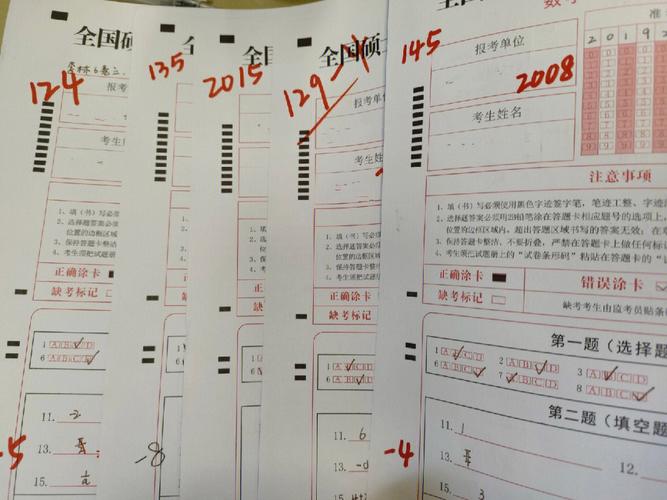 全国硕
124
报考
考生
1、填(书)写必须
2、选择题答案必
位置的边框区域
3、保持答题卡整
4、考生须把试题
正确涂卡
缺考标记
1 [A][B][C][D]
6 [A][B][C][D]
11. 2
13.
15.
-5
全国
135
1、填(
2、选择
位置
3、保持
4、考生
正确
缺考
-8
全国
2015
1、填(书)
2、选择题答
位置的边框
3、保持答题
4、考生须把
正确涂
缺考标
全国硕
129
报考单
考生姓
1、填(书)写必须使
2、选择题答案必须
位置的边框区域内
3、保持答题卡整洁
4、考生须把试题册
正确涂卡
缺考标记
1 [A][B][C][D]
6 [A][B][C][D]
11. 6
13.
15.
145
报考单位
2008
考生姓名
数
准
2 0 1 9 2
注意事项
1、填(书)写必须使用黑色字迹签字笔,笔迹工整、字迹
2、选择题答案必须用2B铅笔涂在答题卡相应题号的选项上,
位置的边框区域内,超出答题区域书写的答案无效;在
3、保持答题卡整洁、不要折叠,严禁在答题卡上做任何标
4、考生须把试题册上的“试卷条形码”粘贴在答题卡的“试
正确涂卡
错误涂卡
缺考标记
缺考考生由监考员贴条
第一题(选择题
1 [A][B][C][D] 2 [A][B][C][D] 3 [A][B][C][D]
6 [A][B][C][D] 7 [A][B][C][D] 8 [A][B][C][D]
第二题(填空题
11. 1
12.
13.
15. 3
-4